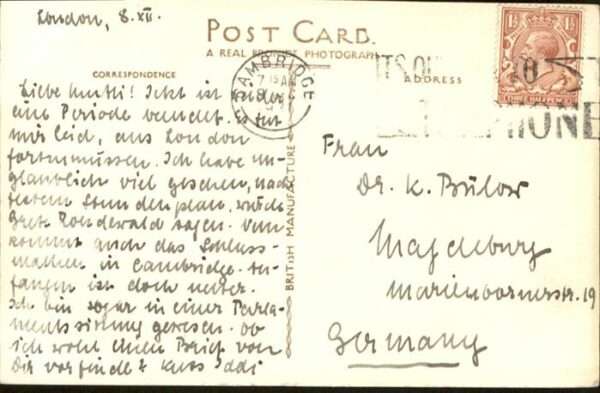 London, 8. XII.
POST CARD.
A REAL PHOTOGRAPH
CORRESPONDENCE
ADDRESS
CAMBRIDGE
7 15 AM
THREE HALFPENCE
BRITISH MANUFACTURE
Liebe Mutti! Jetzt ist wieder
eine Periode beendet. Es tut
mir leid, aus London
fortzumüssen. Ich habe un-
glaublich viel gesehen, nach
festem Stundenplan, würde
Grete sagen. Nun
kommt auch das Schluss-
machen in Cambridge. An-
fangen ist doch netter.
Ich bin sogar in einer Parla-
mentssitzung gewesen. Ob
ich wohl einen Brief von
Dir vorfinde? Kuss
Frau
Dr. K. Bülow
Magdeburg
Marienbornerstr. 19
Germany